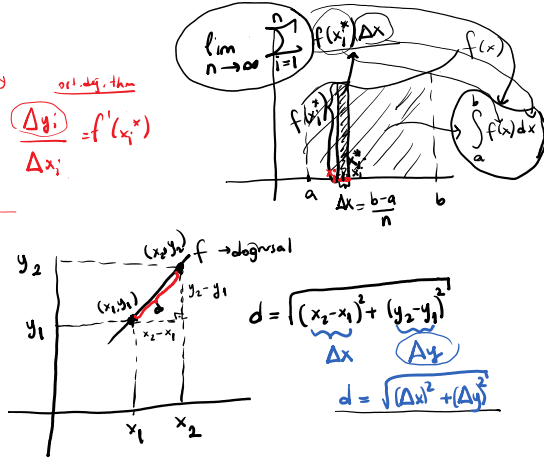 ort. değ. thm
Δyᵢ / Δxᵢ = f'(xᵢ*)
lim n→∞ n Σ i=1 f(xᵢ*) Δx
f(x)
f(xᵢ*)
∫ₐᵇ f(x) dx
xᵢ
a
Δx = b-a / n
b
y₂
(x₂,y₂)
f → doğrusal
(x₁,y₁)
d
y₂-y₁
y₁
x₂-x₁
x₁
x₂
d = √(x₂-x₁)² + (y₂-y₁)²
Δx
Δy
d = √(Δx)² + (Δy)²